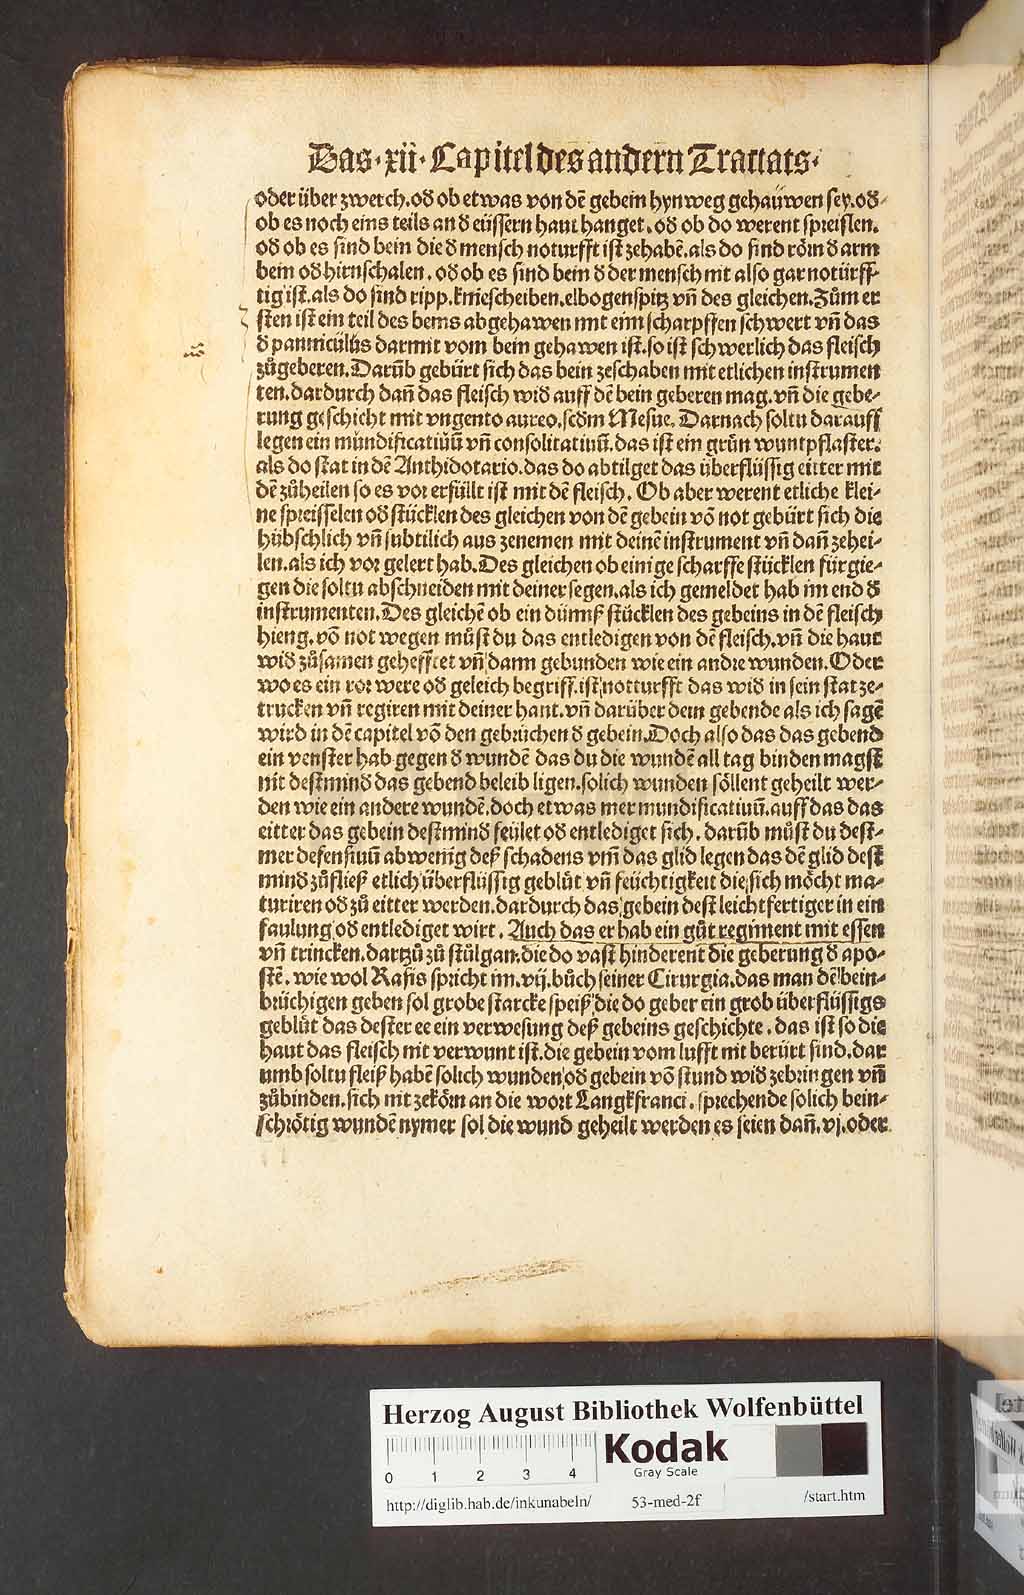 Das·xii·Capitel des andern Tractats·
oder über zwerch.od̕ ob etwas von dē gebein hynweg gehaüwen sey.od̕
ob es noch eins teils an d̕ eüssern haut hanget.od̕ ob do werent spreislen.
od̕ ob es sind bein die d̕ mensch noturfft ist zehabē.als do sind rörn d̕ arm
bein od̕ hirnschalen.od̕ ob es sind bein d̕ der mensch nit also gar notürff-
tig ist.als do sind ripp.kniescheiben.elbogenspitz vn̄ des gleichen.Zům er
sten ist ein teil des beins abgehawen mit eim scharpffen schwert vn̄ das
d̕ panniculus darmit vom bein gehawen ist.so ist schwerlich das fleisch
zůgeberen.Darūb gebürt sich das bein zeschaben mit etlichen instrumen
ten.dardurch dan̄ das fleisch wid̕ auff dē bein geberen mag.vn̄ die gebe-
rung geschicht mit vngento aureo.scd̄m Mesue.Darnach soltu darauff
legen ein mundificatiuū vn̄ consolitatiuū.das ist ein grůn wuntpflaster.
als do stat in dē Anthidotario.das do abtilget das überflüssig eitter mit
dē zůheilen so es vor erfüllt ist mit dē fleisch. Ob aber werent etliche klei-
ne spreisselen od̕ stücklen des gleichen von dē gebein vō not gebürt sich die
hübschlich vn̄ subtilich aus zenemen mit deinē instrument vn̄ dan̄ zehei-
len.als ich vor gelert hab.Des gleichen ob einige scharffe stücklen fürgie-
gen die soltu abschneiden mit deiner segen.als ich gemeldet hab im end d̕
instrumenten.Des gleichē ob ein dünnß stücklen des gebeins in dē fleisch
hieng.vō not wegen můst du das entledigen von dē fleisch.vn̄ die haut
wid̕ zůsamen gehefftet vn̄ dann gebunden wie ein andre wunden.Oder
wo es ein ror were od̕ geleich begriff.ist notturfft das wid̕ in sein stat ze-
trucken vn̄ regiren mit deiner hant.vn̄ darüber dein gebende als ich sagē
wird in dē capitel vō den gebrüchen d̕ gebein.Doch also das das gebend
ein venster hab gegen d̕ wundē das du die wundē all tag binden magst
nit destmind̕ das gebend beleib ligen.solich wunden söllent geheilt wer-
den wie ein andere wundē.doch etwas mer mundificatiuū.auff das das
eitter das gebein destmind̕ feület od̕ entlediget sich. darūb můst du dest-
mer defensiuū abwenig deß schadens vm̄ das glid legen das dē glid dest
mind̕ zůfließ etlich überflüssig geblůt vn̄ feüchtigkeit die sich möcht ma-
turiren od̕ zů eitter werden.dardurch das gebein dest leichtfertiger in ein
faulung od̕ entlediget wirt. Auch das er hab ein gůt regiment mit essen
vn̄ trincken.dartzů zů stůlgan.die do vast hinderent die geberung d̕ apo-
stē. wie wol Rasis spricht im.vij.bůch seiner Cirurgia.das man dē bein-
brüchigen geben sol grobe starcke speiß die do geber ein grob überflüssigs
geblůt das dester ee ein verwesung deß gebeins geschichte. das ist so die
haut das fleisch nit verwunt ist.die gebein vom lufft nit berürt sind.dar
umb soltu fleiß habē solich wunden od̕ gebein vō stund wid̕ zebringen vn̄
zůbinden.sich nit zekörn an die wort Langkfranci.sprechende solich bein-
schrötig wundē nymer sol die wund geheilt werden es seien dan̄.vj.oder
Herzog August Bibliothek Wolfenbüttel
0 1 2 3 4
Kodak
Gray Scale
http://diglib.hab.de/inkunabeln/ 53-med-2f /start.htm